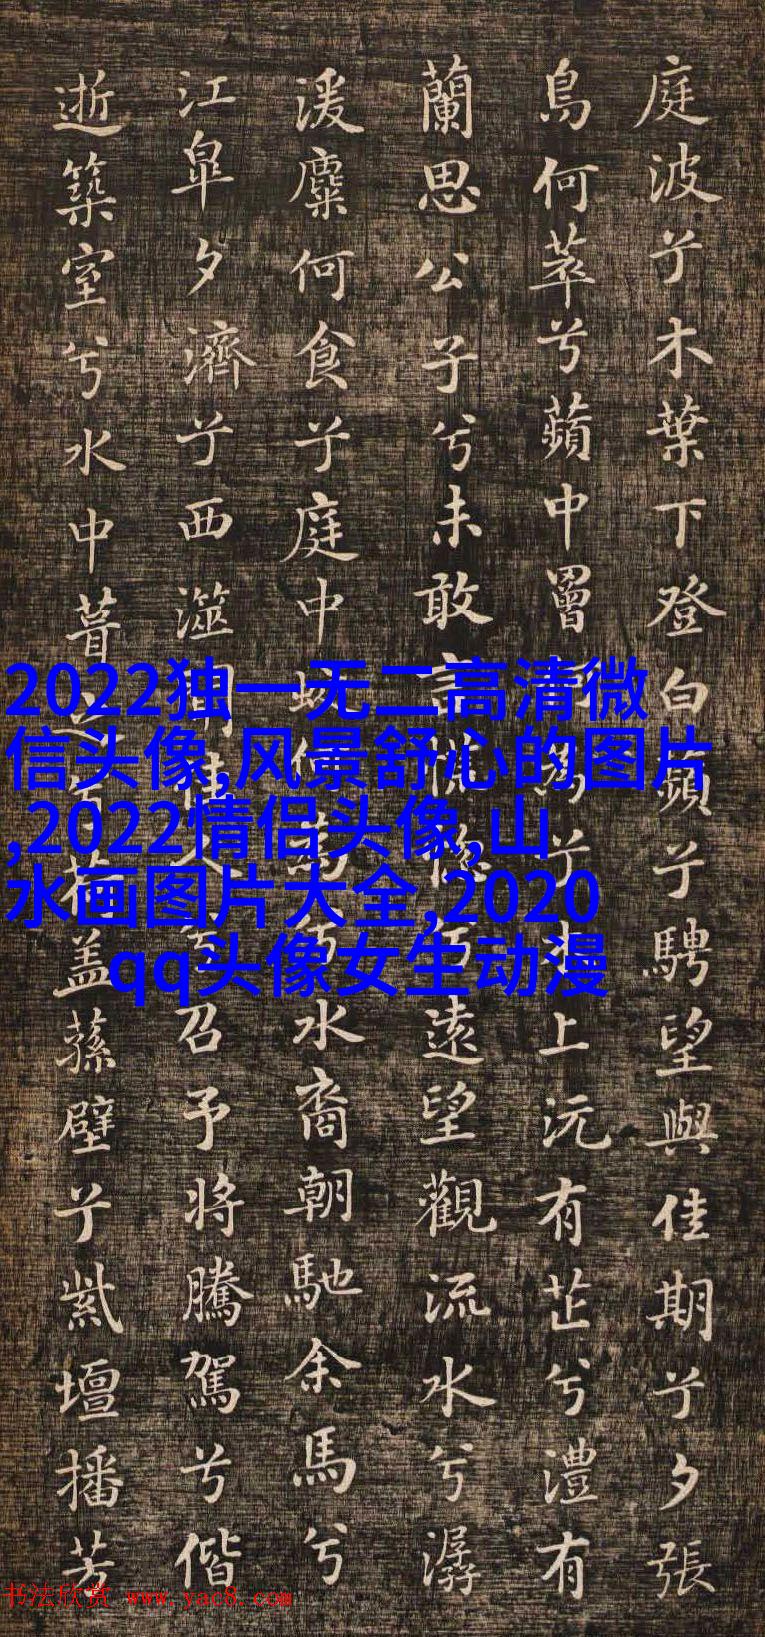 庭波兮木葉下登白蘋兮騁望與佳期兮夕張
鳥何萃兮蘋中罾何為兮木上沅有芷兮澧有
蘭思公子兮未敢言慌惚兮遠望觀流水兮潺
湲麋何食兮庭中蛟何為兮水裔朝馳余馬兮
江皐夕濟兮西澨聞佳人兮召予將騰駕兮偕
逝築室兮水中葺荷盖蓀壁兮紫壇播芳
2022独一无二高清微
信头像,风景舒心的图片
,2022情侣头像,山
水画图片大全,2020
qq头像女生动漫
书法欣赏 www.yac8.com